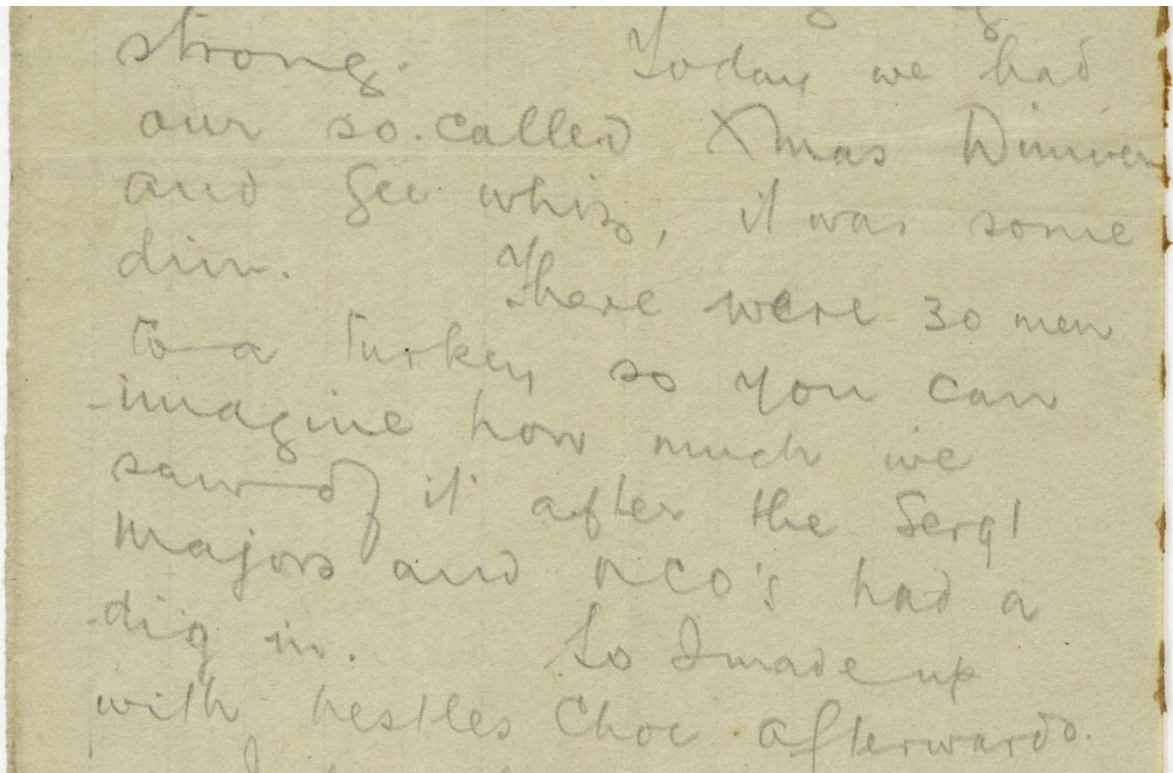 strong. Today we had
our so.called Xmas Dinner
and gee whiz, it was some
dinn. There were 30 men
to a turkey so you can
imagine how much we
saw of it after the Sergt
Majors and NCO's had a
dig in. So I made up
with nestles Choc afterwards.